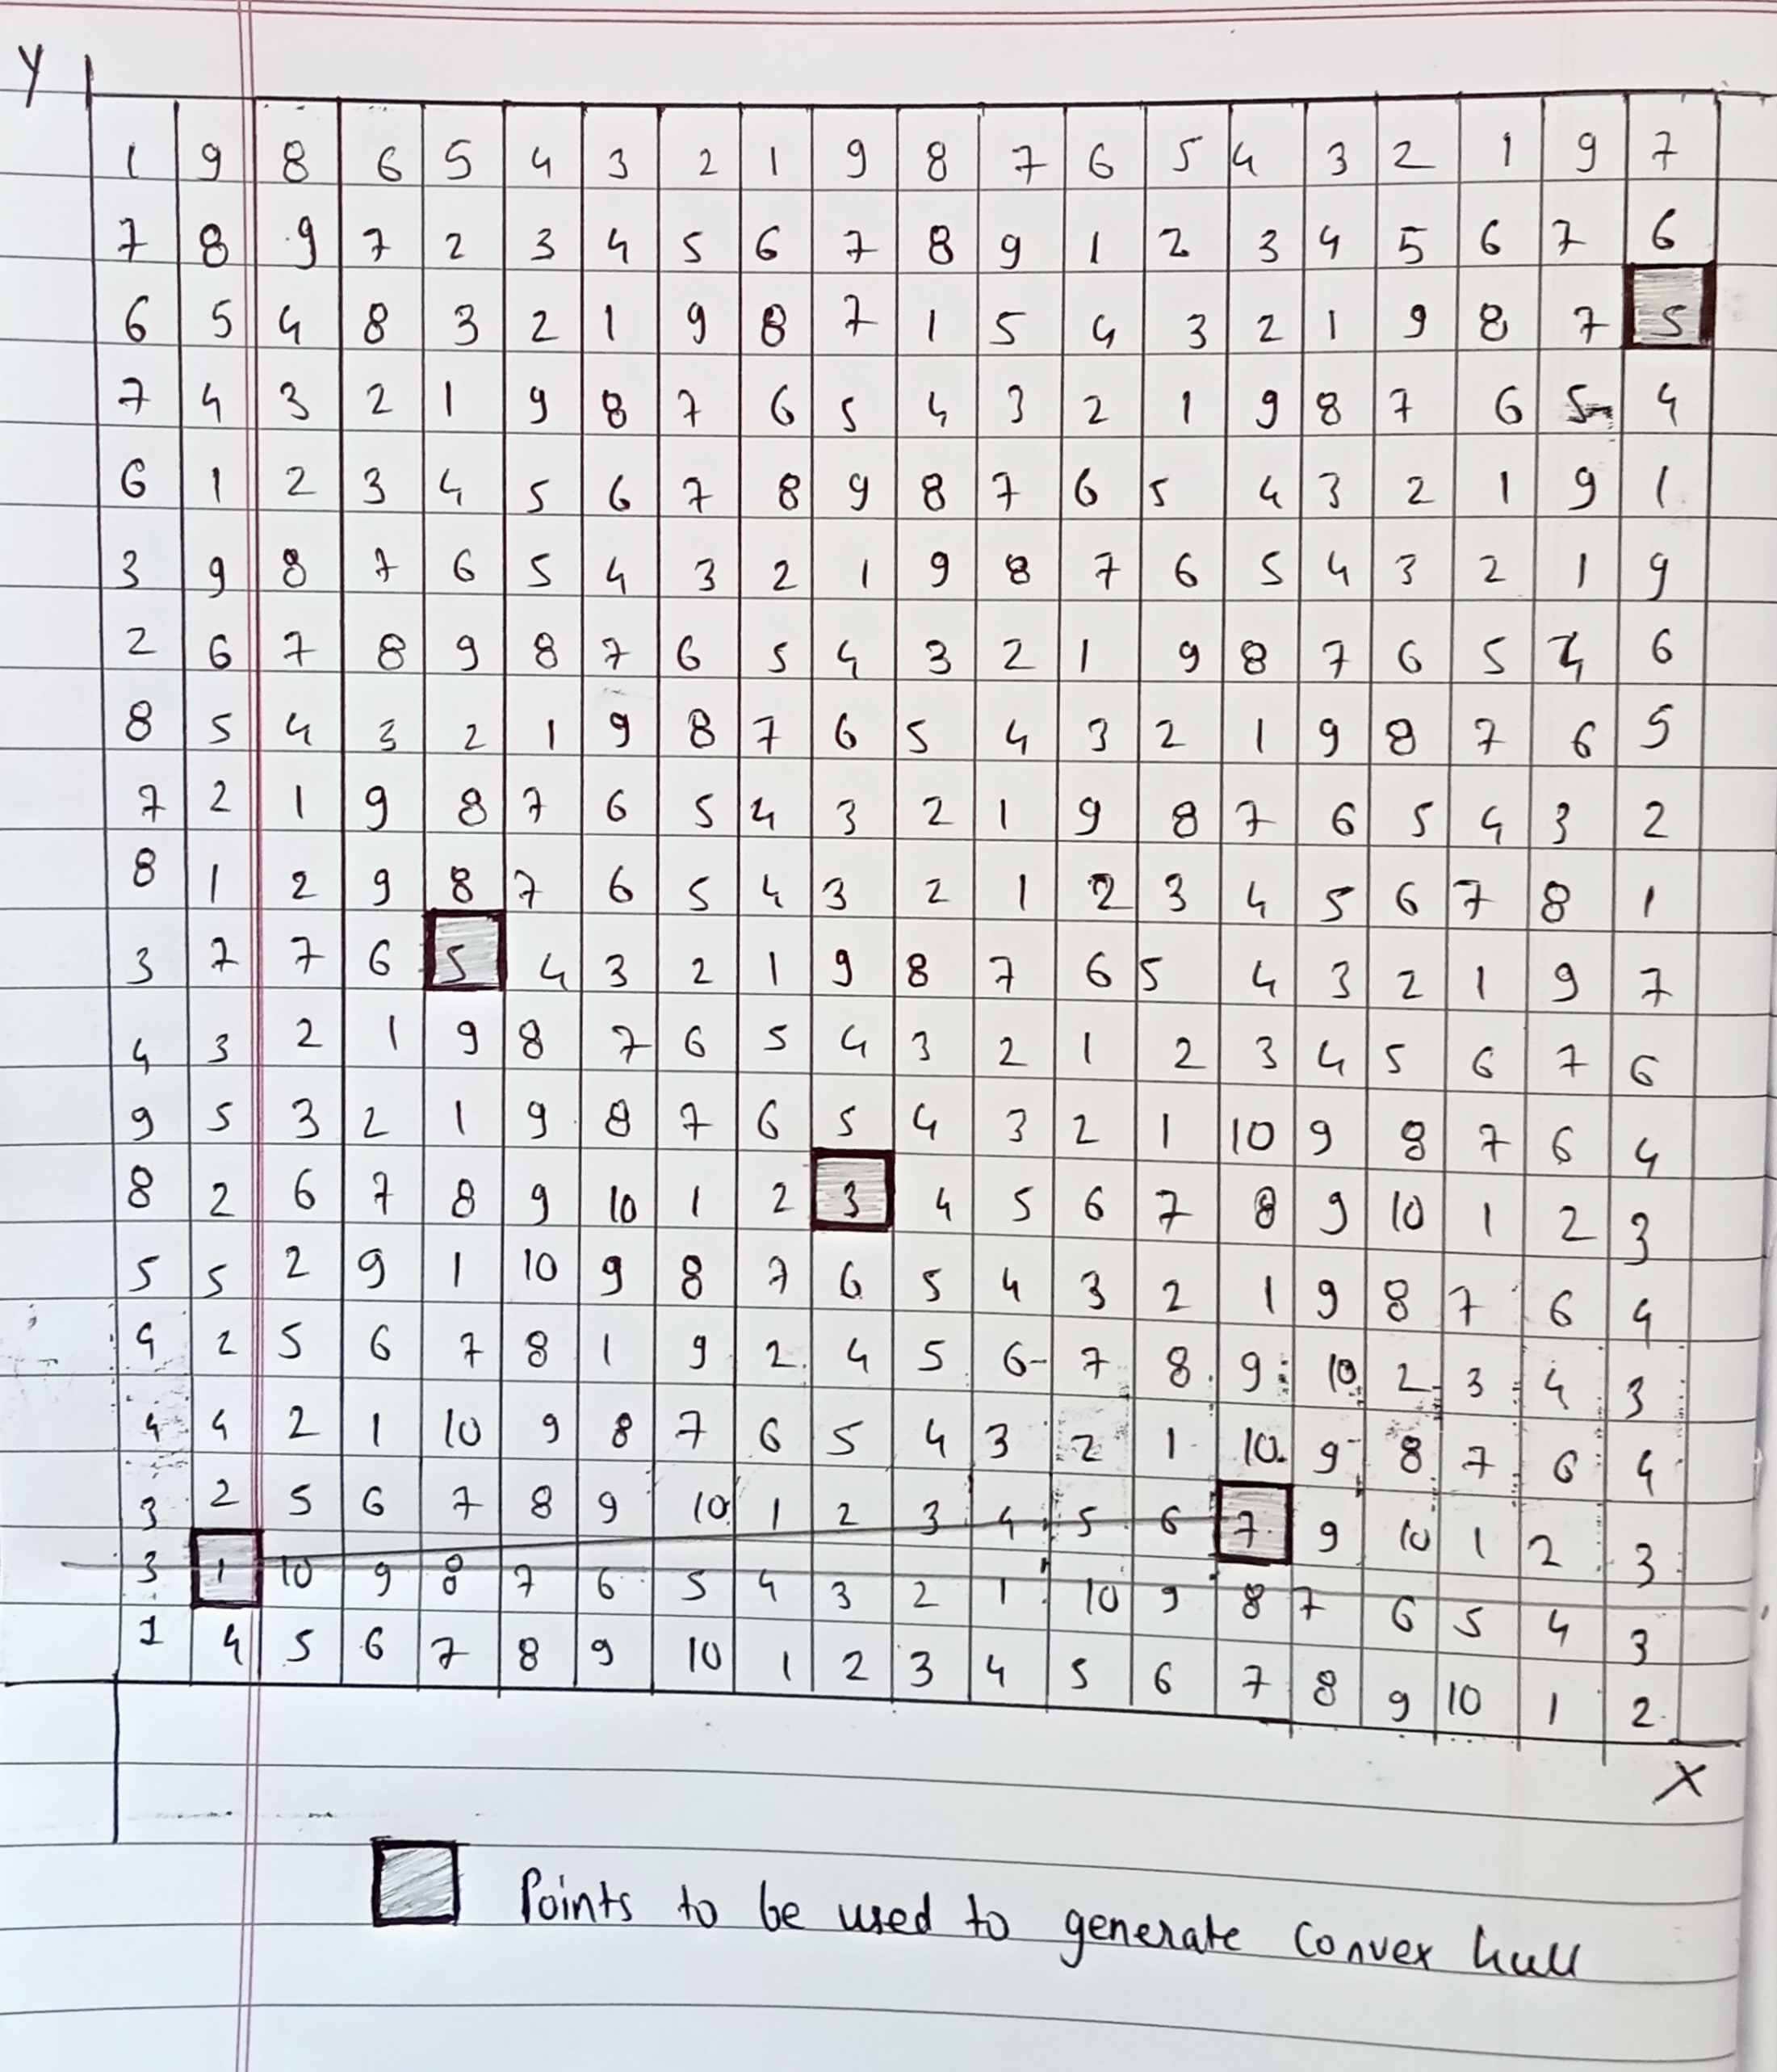 Y
1 9 8 6 5 4 3 2 1 9 8 7 6 5 4 3 2 1 9 7
7 8 9 7 2 3 4 5 6 7 8 9 1 2 3 4 5 6 7 6
6 5 4 8 3 2 1 9 8 7 1 5 4 3 2 1 9 8 7 5
7 4 3 2 1 9 8 7 6 5 4 3 2 1 9 8 7 6 5 4
6 1 2 3 4 5 6 7 8 9 8 7 6 5 4 3 2 1 9 1
3 9 8 7 6 5 4 3 2 1 9 8 7 6 5 4 3 2 1 9
2 6 7 8 9 8 7 6 5 4 3 2 1 9 8 7 6 5 4 6
8 5 4 3 2 1 9 8 7 6 5 4 3 2 1 9 8 7 6 5
7 2 1 9 8 7 6 5 4 3 2 1 9 8 7 6 5 4 3 2
8 1 2 9 8 7 6 5 4 3 2 1 2 3 4 5 6 7 8 1
3 7 7 6 5 4 3 2 1 9 8 7 6 5 4 3 2 1 9 7
4 3 2 1 9 8 7 6 5 4 3 2 1 2 3 4 5 6 7 6
9 5 3 2 1 9 8 7 6 5 4 3 2 1 10 9 8 7 6 4
8 2 6 7 8 9 10 1 2 3 4 5 6 7 8 9 10 1 2 3
5 5 2 9 1 10 9 8 7 6 5 4 3 2 1 9 8 7 6 4
9 2 5 6 7 8 1 9 2 4 5 6 7 8 9 10 2 3 4 3
4 4 2 1 10 9 8 7 6 5 4 3 2 1 10 9 8 7 6 4
3 2 5 6 7 8 9 10 1 2 3 4 5 6 7 9 10 1 2 3
3 1 10 9 8 7 6 5 4 3 2 1 10 9 8 7 6 5 4 3
1 4 5 6 7 8 9 10 1 2 3 4 5 6 7 8 9 10 1 2
X
Points to be used to generate convex hull